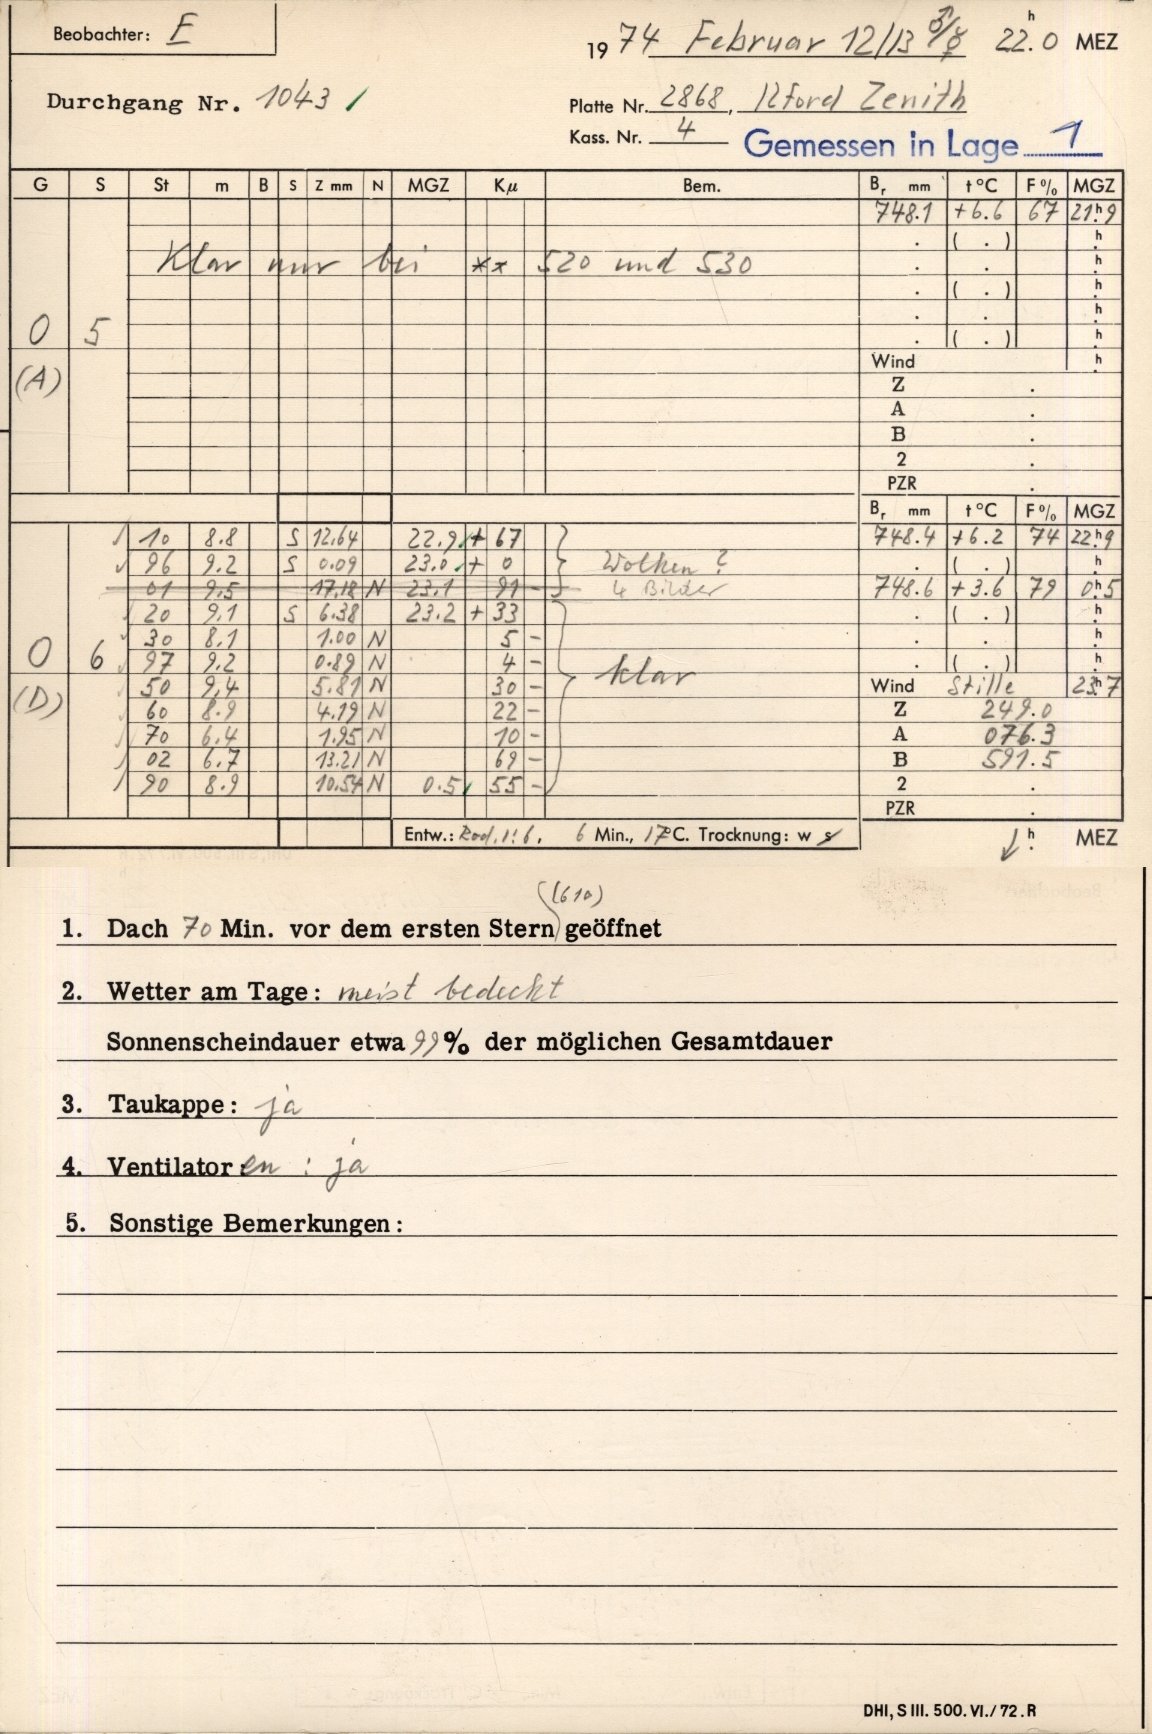 Beobachter: E
1974 Februar 12/13 ♂/☿ 22.ʰ0 MEZ
Durchgang Nr. 1043
Platte Nr. 2868, Ilford Zenith
Kass. Nr. 4 Gemessen in Lage 1
G S St m B S Z mm N MGZ Kμ Bem. Bᵣ mm t °C F % MGZ
748.1 +6.6 67 21ʰ9
. ( . ) ʰ
Klar nur bei ** 520 und 530 . . ʰ
. ( . ) ʰ
. . ʰ
0 5 . ( . ) ʰ
Wind ʰ
(A) Z .
A .
B .
2 .
PZR .
Bᵣ mm t °C F % MGZ
10 8.8 S 12.64 22.9 + 67 748.4 +6.2 74 22ʰ9
96 9.2 S 0.09 23.0 + 0 Wolken ? . ( . ) ʰ
01 9.5 17.18 N 23.1 91 - 4 Bilder 748.6 +3.6 79 0ʰ5
20 9.1 S 6.38 23.2 + 33 . ( . ) ʰ
30 8.1 1.00 N 5 - . . ʰ
0 6 97 9.2 0.89 N 4 - klar . ( . ) ʰ
(D) 50 9.4 5.81 N 30 - Wind Stille 23ʰ7
60 8.9 4.19 N 22 - Z 249.0
70 6.4 1.95 N 10 - A 076.3
02 6.7 13.21 N 69 - B 591.5
90 8.9 10.54 N 0.5 55 - 2 .
PZR .
Entw.: Rod. 1:6, 6 Min., 17°C. Trocknung: w s ʰ. MEZ
(610)
1. Dach 70 Min. vor dem ersten Stern geöffnet
2. Wetter am Tage: meist bedeckt
Sonnenscheindauer etwa 99% der möglichen Gesamtdauer
3. Taukappe: ja
4. Ventilator:en : ja
5. Sonstige Bemerkungen:
DHI, S III. 500. VI./72. R